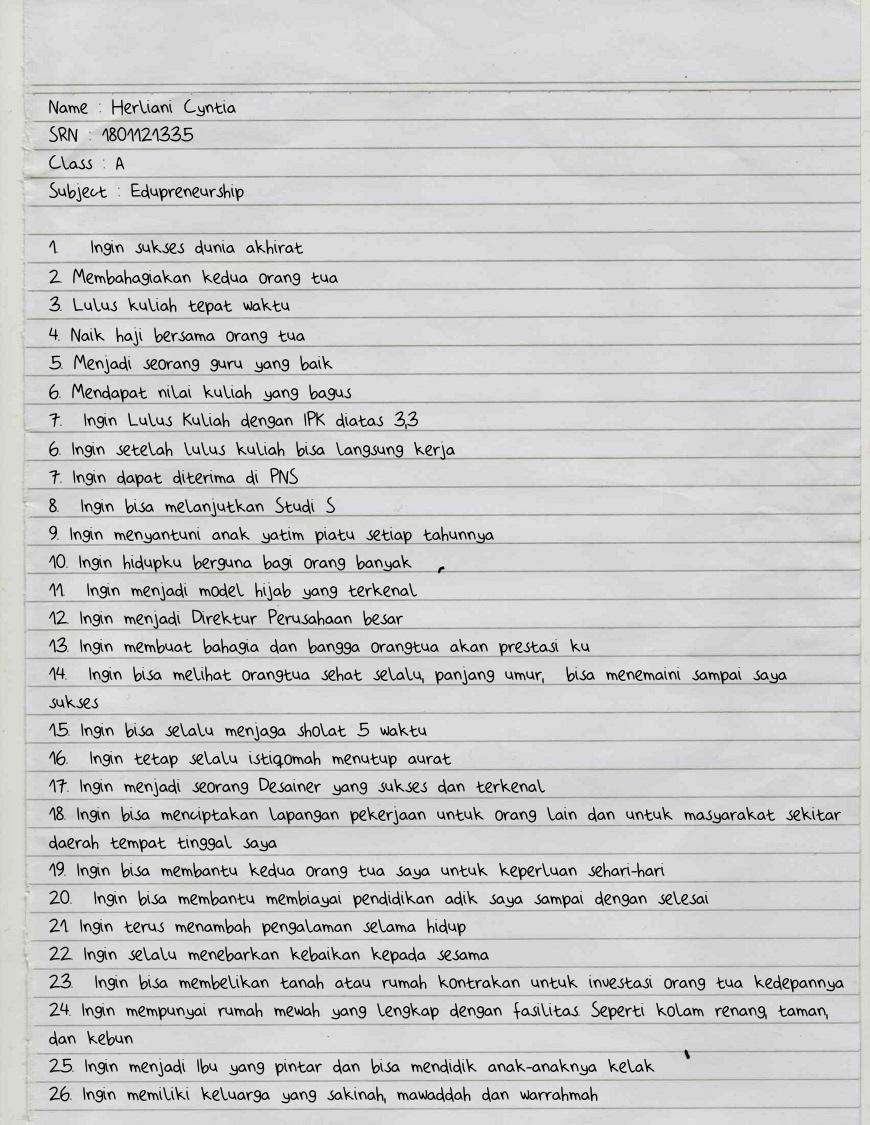 Name : Herliani Cyntia
SRN : 1801121335
Class : A
Subject : Edupreneurship
1 Ingin sukses dunia akhirat
2 Membahagiakan kedua orang tua
3. Lulus kuliah tepat waktu
4. Naik haji bersama orang tua
5. Menjadi seorang guru yang baik
6. Mendapat nilai kuliah yang bagus
7. Ingin Lulus Kuliah dengan IPK diatas 3,3
6. Ingin setelah lulus kuliah bisa langsung kerja
7. Ingin dapat diterima di PNS
8. Ingin bisa melanjutkan Studi S
9. Ingin menyantuni anak yatim piatu setiap tahunnya
10. Ingin hidupku berguna bagi orang banyak
11 Ingin menjadi model hijab yang terkenal
12 Ingin menjadi Direktur Perusahaan besar
13. Ingin membuat bahagia dan bangga orangtua akan prestasi ku
14. Ingin bisa melihat orangtua sehat selalu, panjang umur, bisa menemaini sampai saya
sukses
15. Ingin bisa selalu menjaga sholat 5 waktu
16. Ingin tetap selalu istiqomah menutup aurat
17. Ingin menjadi seorang Desainer yang sukses dan terkenal
18. Ingin bisa menciptakan lapangan pekerjaan untuk orang lain dan untuk masyarakat sekitar
daerah tempat tinggal saya
19. Ingin bisa membantu kedua orang tua saya untuk keperluan sehari-hari
20. Ingin bisa membantu membiayai pendidikan adik saya sampai dengan selesai
21 Ingin terus menambah pengalaman selama hidup
22 Ingin selalu menebarkan kebaikan kepada sesama
23. Ingin bisa membelikan tanah atau rumah kontrakan untuk investasi orang tua kedepannya
24. Ingin mempunyai rumah mewah yang lengkap dengan fasilitas Seperti kolam renang, taman,
dan kebun
25. Ingin menjadi Ibu yang pintar dan bisa mendidik anak-anaknya kelak
26. Ingin memiliki keluarga yang sakinah, mawaddah dan warrahmah